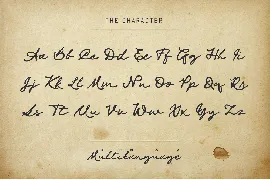 THE CHARACTER
Aa Bb Cc Dd Ee Ff Gg Hh Ii
Jj Kk Ll Mm Nn Oo Pp Qq Rr
Ss Tt Uu Vv Ww Xx Yy Zz
Multilanguage